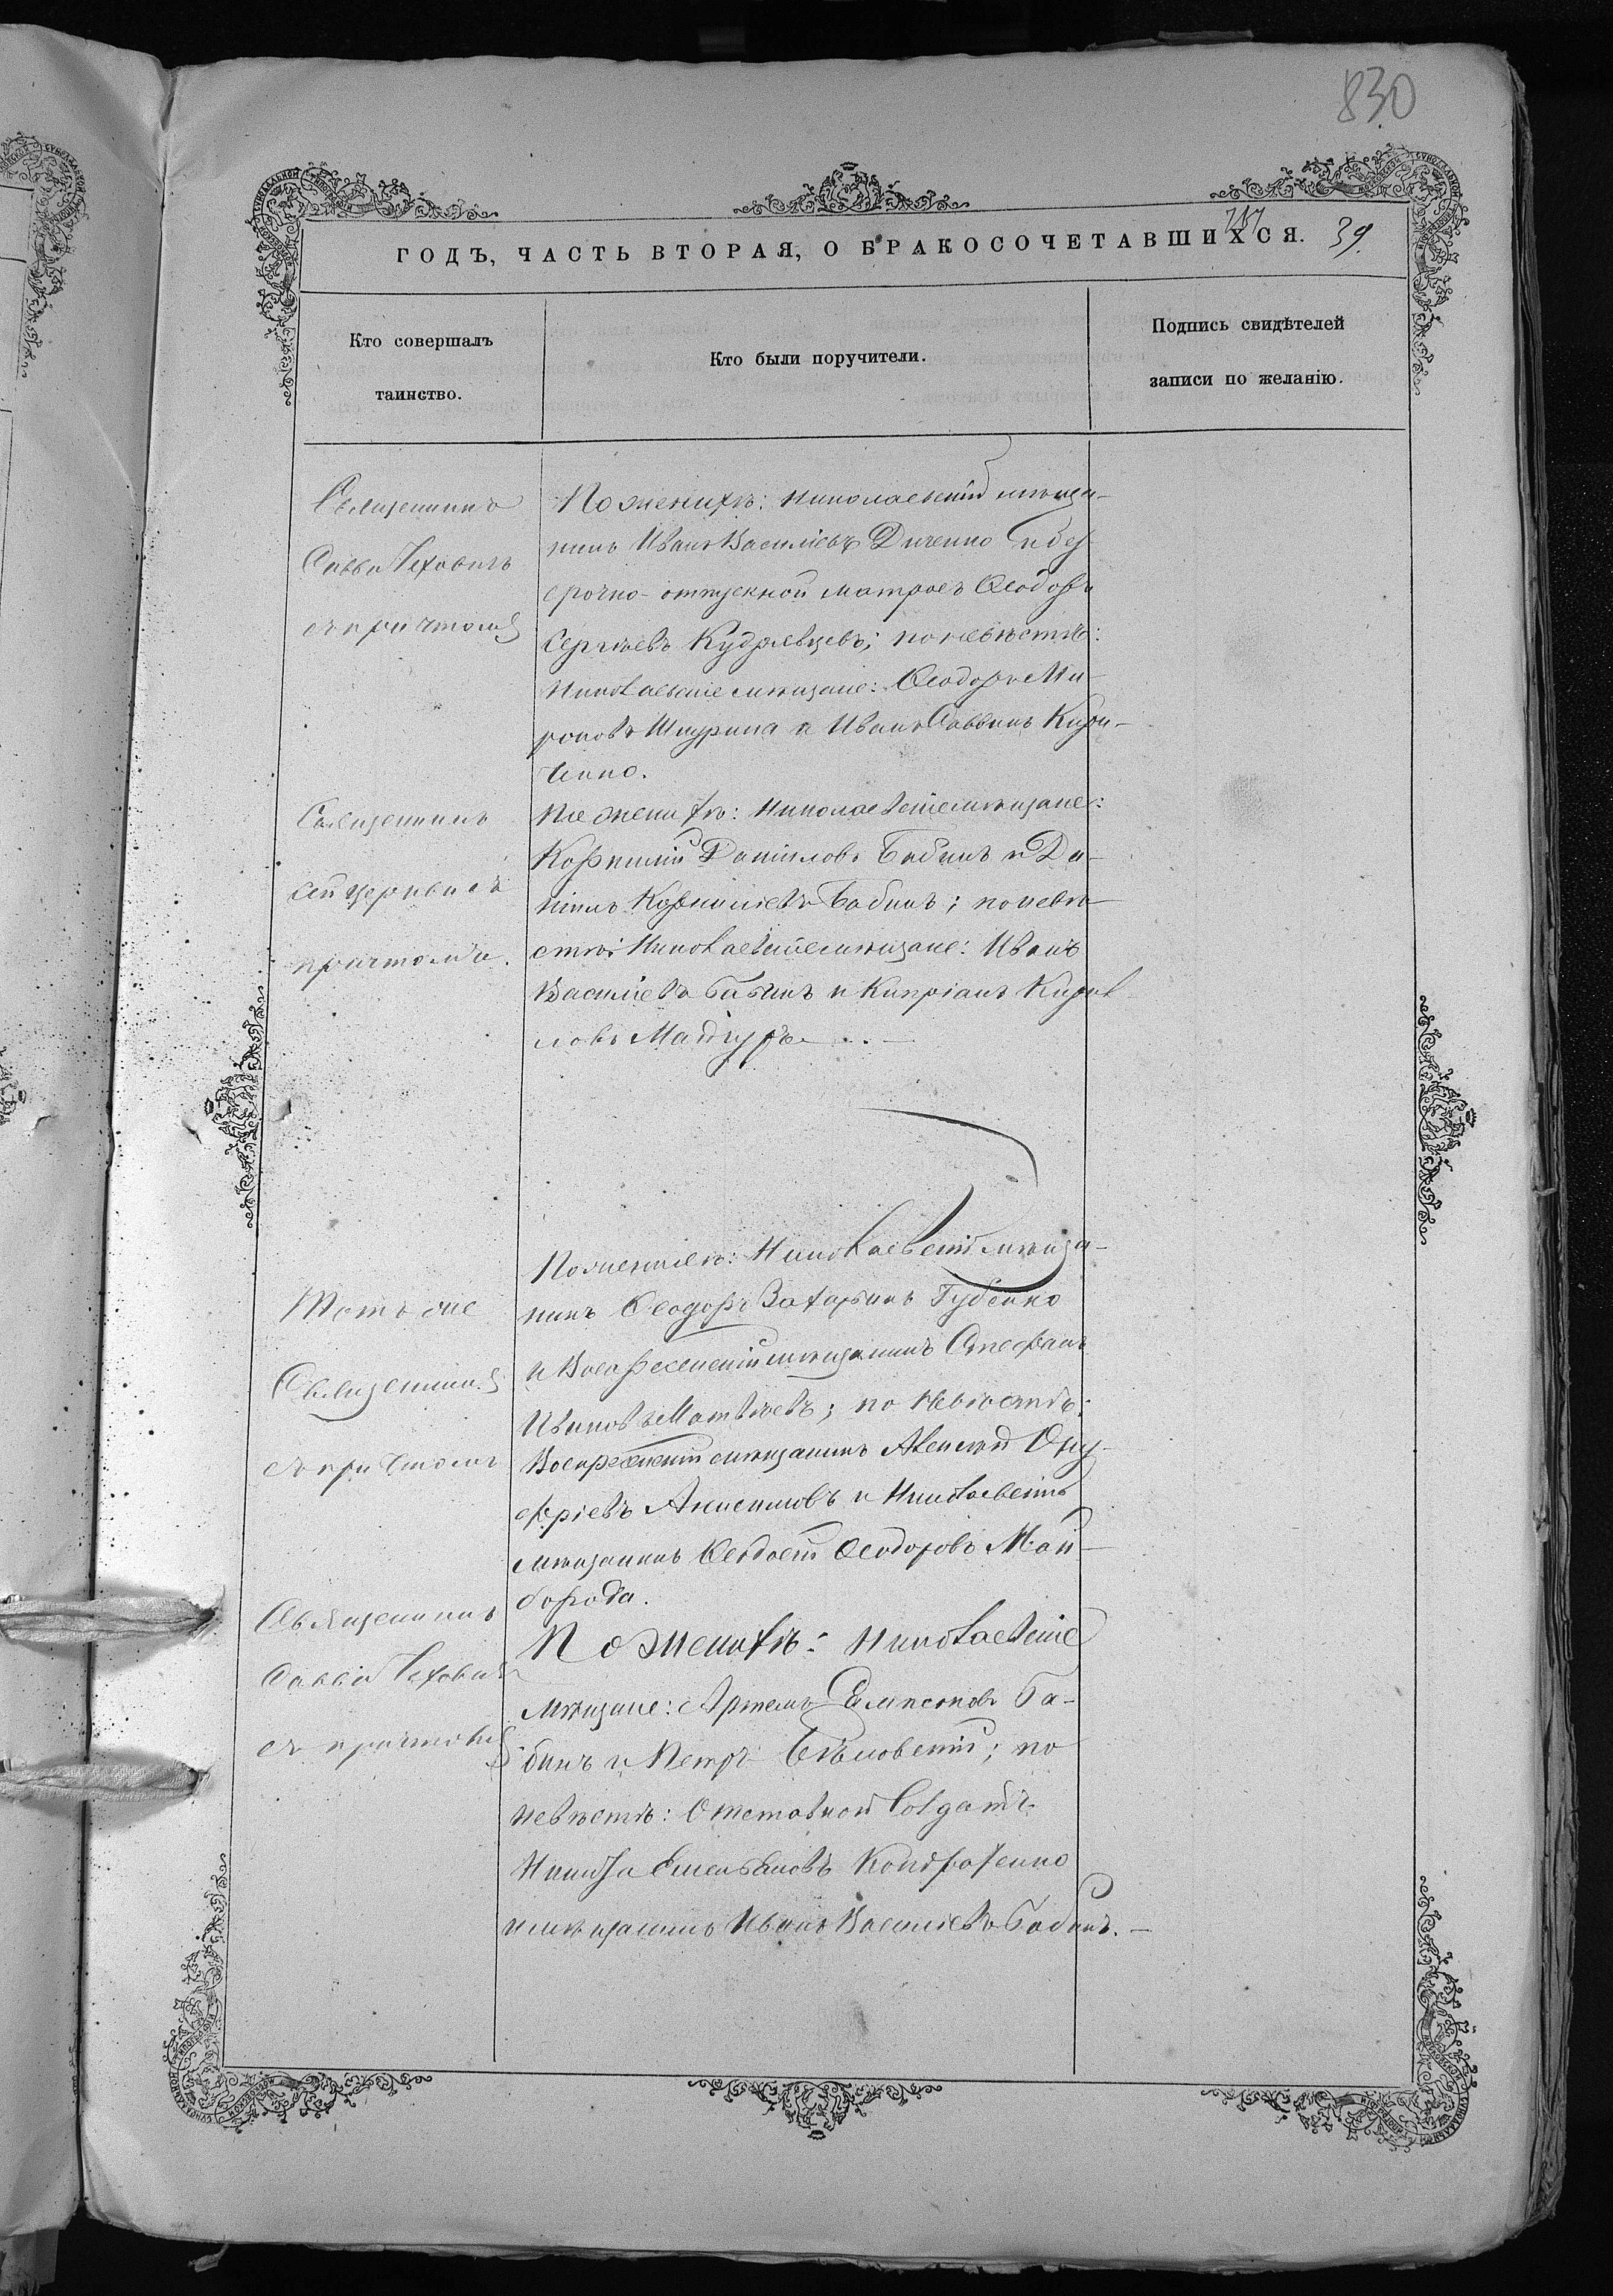 830
ГОДЪ, ЧАСТЬ ВТОРАЯ, О БРАКОСОЧЕТАВШИХСЯ. 39.
Кто совершалъ
таинство.
Кто были поручители.
Подпись свидѣтелей
записи по желанію.
Священникъ
Савва
съ причтомъ
По женихѣ: Николаевскій мѣща-
нинъ Иванъ Василіевъ Диченко и без
срочно-отпускной матросъ Ѳеодоръ
Сергѣевъ Кудрявцевъ; по невѣстѣ:
Николаевскіе мѣщане: Ѳеодоръ Ми-
роновъ Шпурина и Иванъ Саввинъ Кири-
ченко.
Священникъ
причтомъ.
По женихѣ: Николаевскіе мѣщане:
Корнилій Даніиловъ Бабинъ и Да-
ніилъ Корниліевъ Бабинъ; по невѣ-
стѣ: Николаевскіе мѣщане: Иванъ
Василіевъ Бабинъ и Кипріанъ Кирил
ловъ
Тотъ же
Священникъ
съ причтомъ
По женихѣ: Николаевскій мѣща-
нинъ Ѳеодоръ Захарьинъ Губенко
и Воскресенскій мѣщанинъ Стефанъ
Ивановъ Матвѣевъ; по невѣстѣ:
Воскресенскій мѣщанинъ Алексѣй Ону-
фріевъ Анисимовъ и Николаевскій
мѣщанинъ Ѳеодосій Ѳеодоровъ Май-
борода.
Священникъ
Савва
съ причтомъ
По женихѣ: Николаевскіе
мѣщане: Артемъ Ба-
бинъ и Петръ Бѣловскій; по
невѣстѣ: Отставной солдатъ
Никита Емельяновъ Кондратенко
и мѣщанинъ Иванъ Василіевъ Бабинъ.